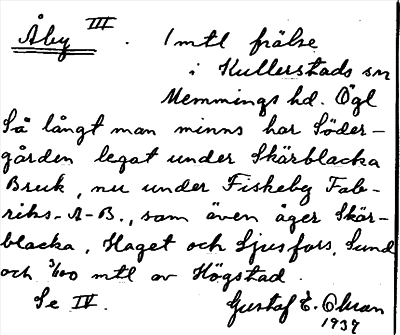 Åby III. 1 mtl frälse
i Kullerstads sn
Memmings hd. Ögl
Så långt man minns har Söder-
gården legat under Skärblacka
Bruk, nu under Fiskeby Fab-
riks-A-B., som även äger Skär-
blacka, Haget och Ljusfors, Sund
och 3/100 mtl av Högstad.
Se IV. Gustaf E. Olsson
1937